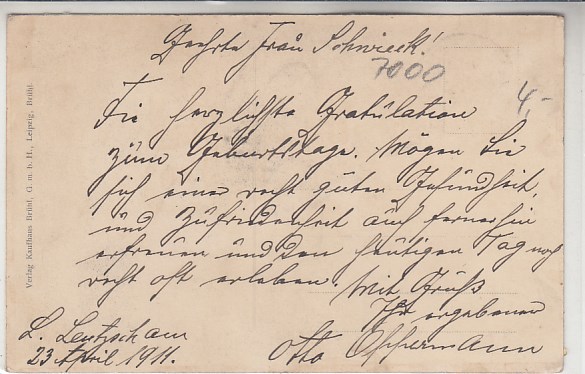 Geehrte Frau Schwieck!
7000
4,-
Die herzlichste Gratulation
zum Geburtstage. Mögen Sie
sich einer recht guten Gesundheit
und Zufriedenheit auch fernerhin
erfreuen und den heutigen Tag noch
recht oft erleben. Mit Gruß
Ihr ergebener
Otto Oppermann
L. Leutzsch am
23 April 1911.
Verlag Kaufhaus Brühl, G. m. b. H., Leipzig, Brühl.